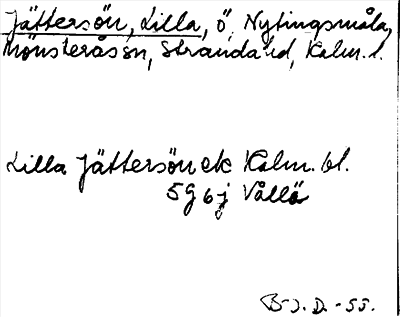 Jättersön, Lilla, ö, Nytingsmåla,
Mönsterås sn, Stranda hd, Kalm. l.
Lilla Jättersön ek Kalm. bl.
5G 6j Vållö
B-J. D. -55.